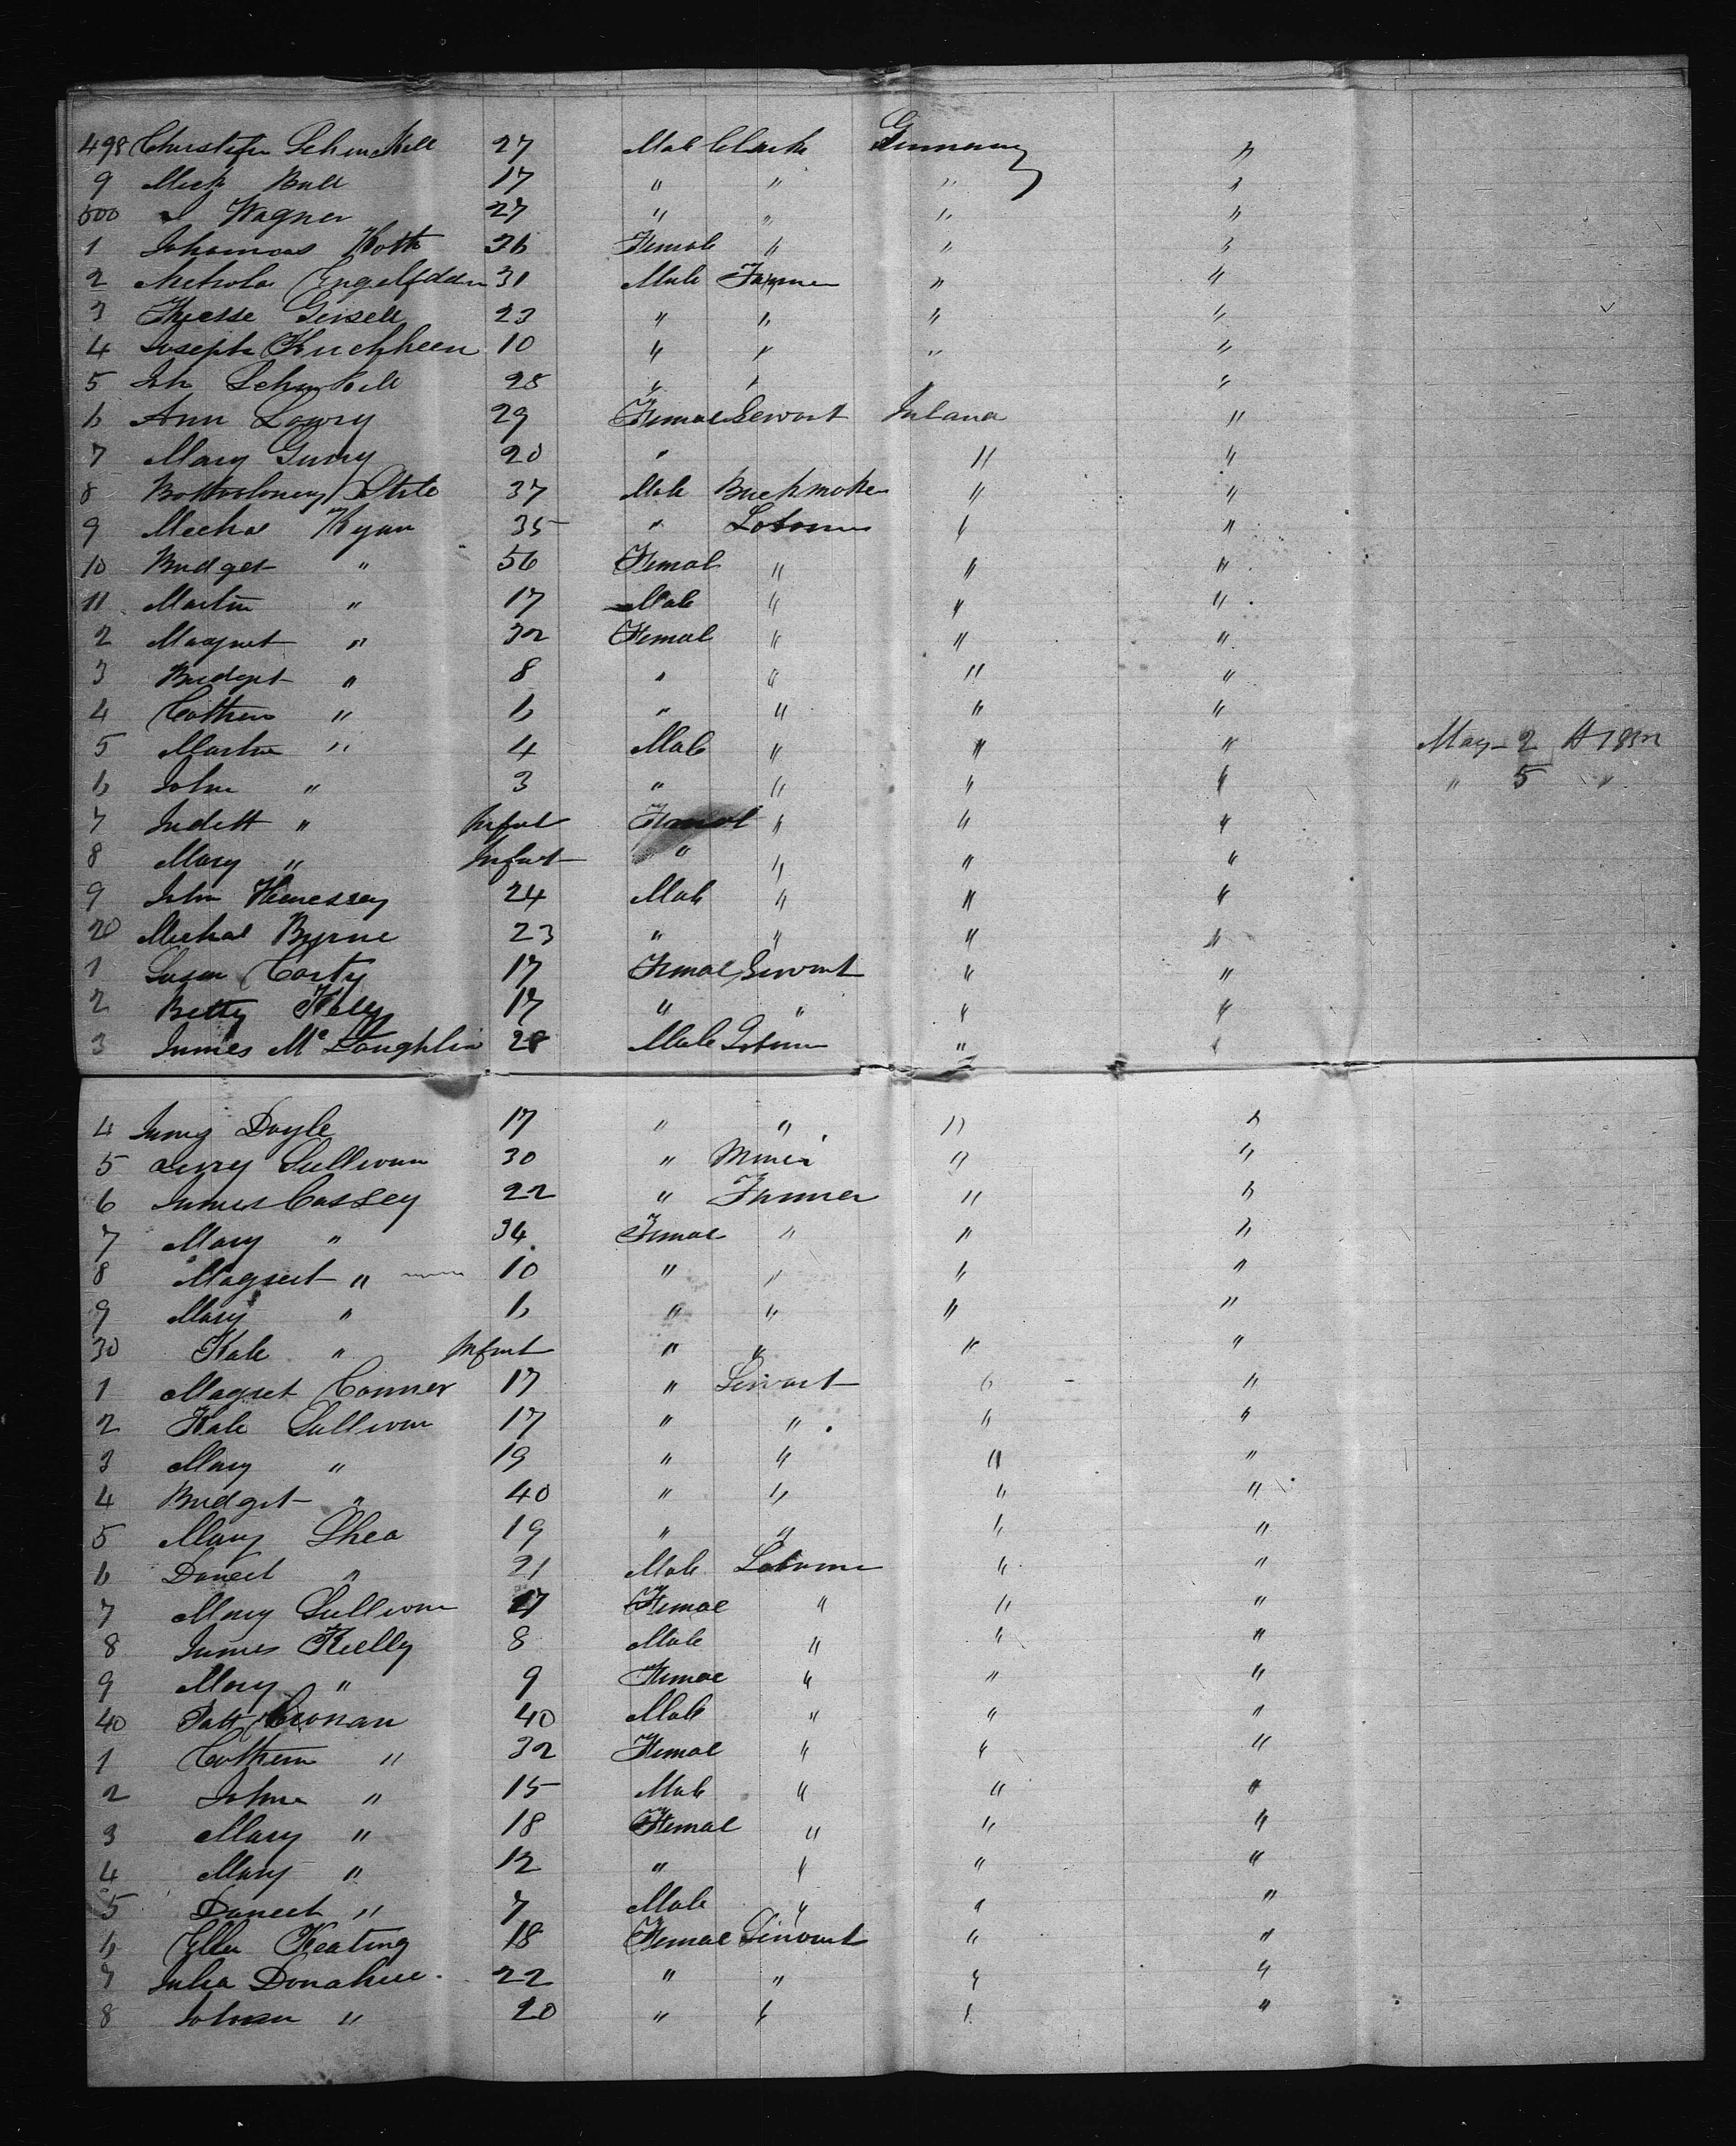 498 Christifer Schinckell 27 Male Clarke Germany "
9 Mick Bull 17 " " " "
500 J Wagner 27 " " " "
1 Johannas Koth 36 Female " " "
2 Nicholas 31 Male Farmer " "
3 23 " " " "
4 Joseph Kuckheen 10 " " " "
5 Joh Schinkell 28 " " " "
6 Ann Lowry 29 Femal Servant Irland "
7 Mary Gurry 20 " " "
8 37 Male "
9 Micheal Ryan 35 " Laborer " "
10 Bridget " 56 Femal " " "
11 Martin " 17 Male " " "
2 Magret " 32 Femal " " "
3 Bridget " 8 " " " "
4 Cathern " 6 " " " "
5 Martin " 4 Male " " " May 2
6 John " 3 " " " " " 5 "
7 Judett " Infant Femal " " "
8 Mary " Infant " " " "
9 John Hennessey 24 Male " " "
20 Micheal Byrne 23 " " " "
1 Susan Carty 17 Femal Servant " "
2 Betty Kelly 17 " " " "
3 James McLoughlin 28 Male Laborer " "
4 James Doyle 17 " " " "
5 Jerry Sullivan 30 " Miner " "
6 James Cassey 22 " Farmer " "
7 Mary " 34 Femal " " "
8 Magret " 10 " " " "
9 Mary " 6 " " " "
30 Kate " Infant " " " "
1 Magret Conner 17 " Servant " "
2 Kate Sullivan 17 " " " "
3 Mary " 19 " " " "
4 Bridget " 40 " " " "
5 Mary Shea 19 " " " "
6 Daniel " 21 Male Laborer " "
7 Mary Sullivan 17 Femal " " "
8 James Kielly 8 Male " " "
9 Mary " 9 Femal " " "
40 Patt Cronan 40 Male " " "
1 Cathern " 32 Femal " " "
2 John " 15 Male " " "
3 Mary " 18 Femal " " "
4 Mary " 12 " " " "
5 Daniel " 7 Male " " "
6 Ellen Keating 18 Femal Servant " "
7 Julia Donahue 22 " " " "
8 " 20 " " " "